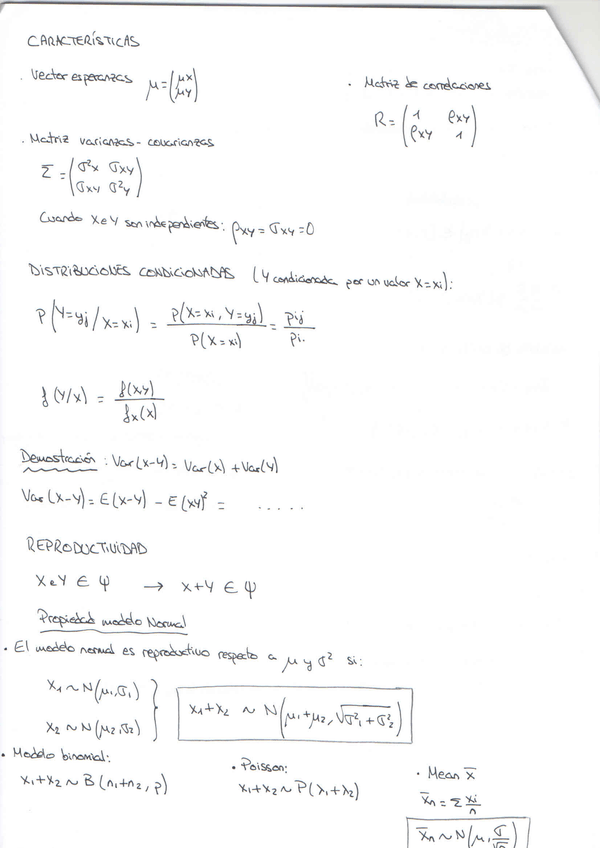 CARACTERÍSTICAS
· Vector esperanzas μ = (μx μy)
· Matriz de correlaciones
R = (1 ρxy ρxy 1)
· Matriz varianzas - covarianzas
Σ = (σ²x σxy σxy σ²y)
Cuando X e Y son independientes: ρxy = σxy = 0
DISTRIBUCIONES CONDICIONADAS (Y condicionada por un valor X=xi):
P(Y=yj / X=xi) = P(X=xi, Y=yj) / P(X=xi) = pij / pi.
f(Y/x) = f(x,y) / fx(x)
Demostración: Var(x-y) = Var(x) + Var(y)
Var(x-y) = E(x-y) - E(xy)² = .....
REPRODUCTIVIDAD
X e Y ∈ ψ → x+y ∈ ψ
Propiedad modelo Normal
· El modelo normal es reproductivo respecto a μ y σ² si:
x1 ~ N(μ1, σ1)
x2 ~ N(μ2, σ2)
x1+x2 ~ N(μ1+μ2, √σ²1+σ²2)
· Modelo binomial:
x1+x2 ~ B(n1+n2, p)
· Poisson:
x1+x2 ~ P(λ1+λ2)
· Mean x̄
x̄n = Σ xi/n
x̄n ~ N(μ, σ/√n)